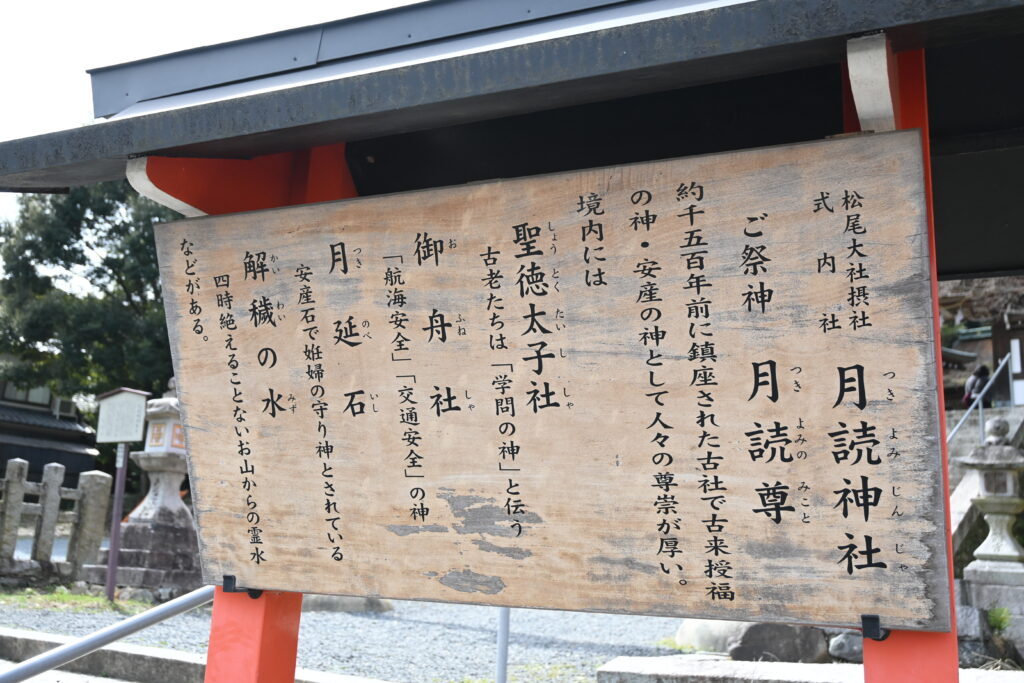 松尾大社摂社
式内社
月読神社
つきよみじんじゃ
ご祭神 月読尊
つきよみのみこと
約千五百年前に鎮座された古社で古来授福
の神・安産の神として人々の尊崇が厚い。
境内には
聖徳太子社
しょうとくたいししゃ
古老たちは「学問の神」と伝う
御舟社
おふねしゃ
「航海安全」「交通安全」の神
月延石
つきのべいし
安産石で妊婦の守り神とされている
解穢の水
かいわいみず
四時絶えることないお山からの霊水
などがある。